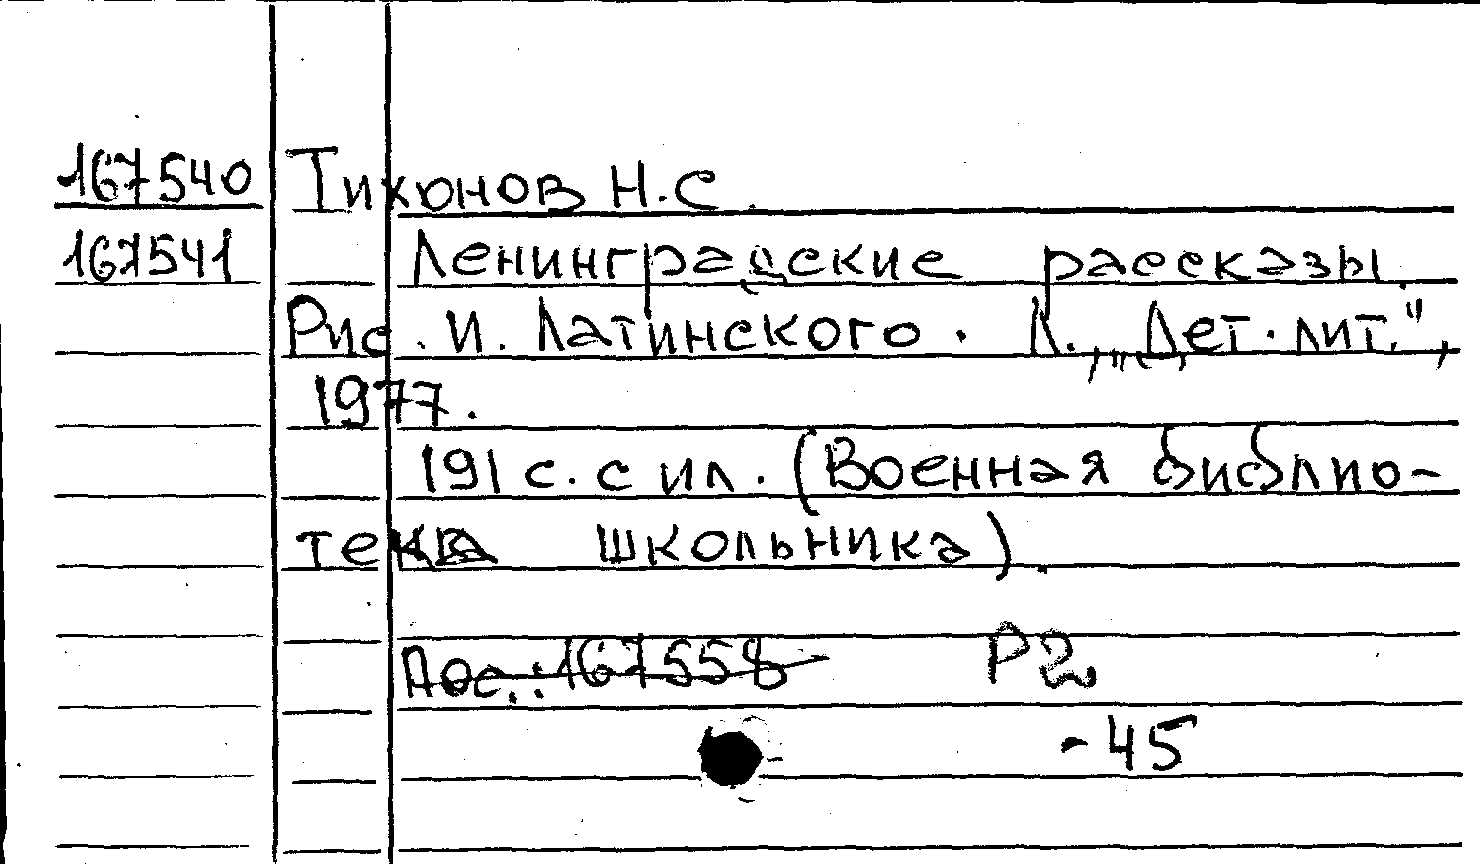 167540 Тихонов Н.С.
167541 Ленинградские рассказы.
Рис. И. Латинского. Л., „Дет. лит.",
1977.
191 с. с ил. (Военная библио-
тека школьника).
Лос.: 167558 Р2
-45